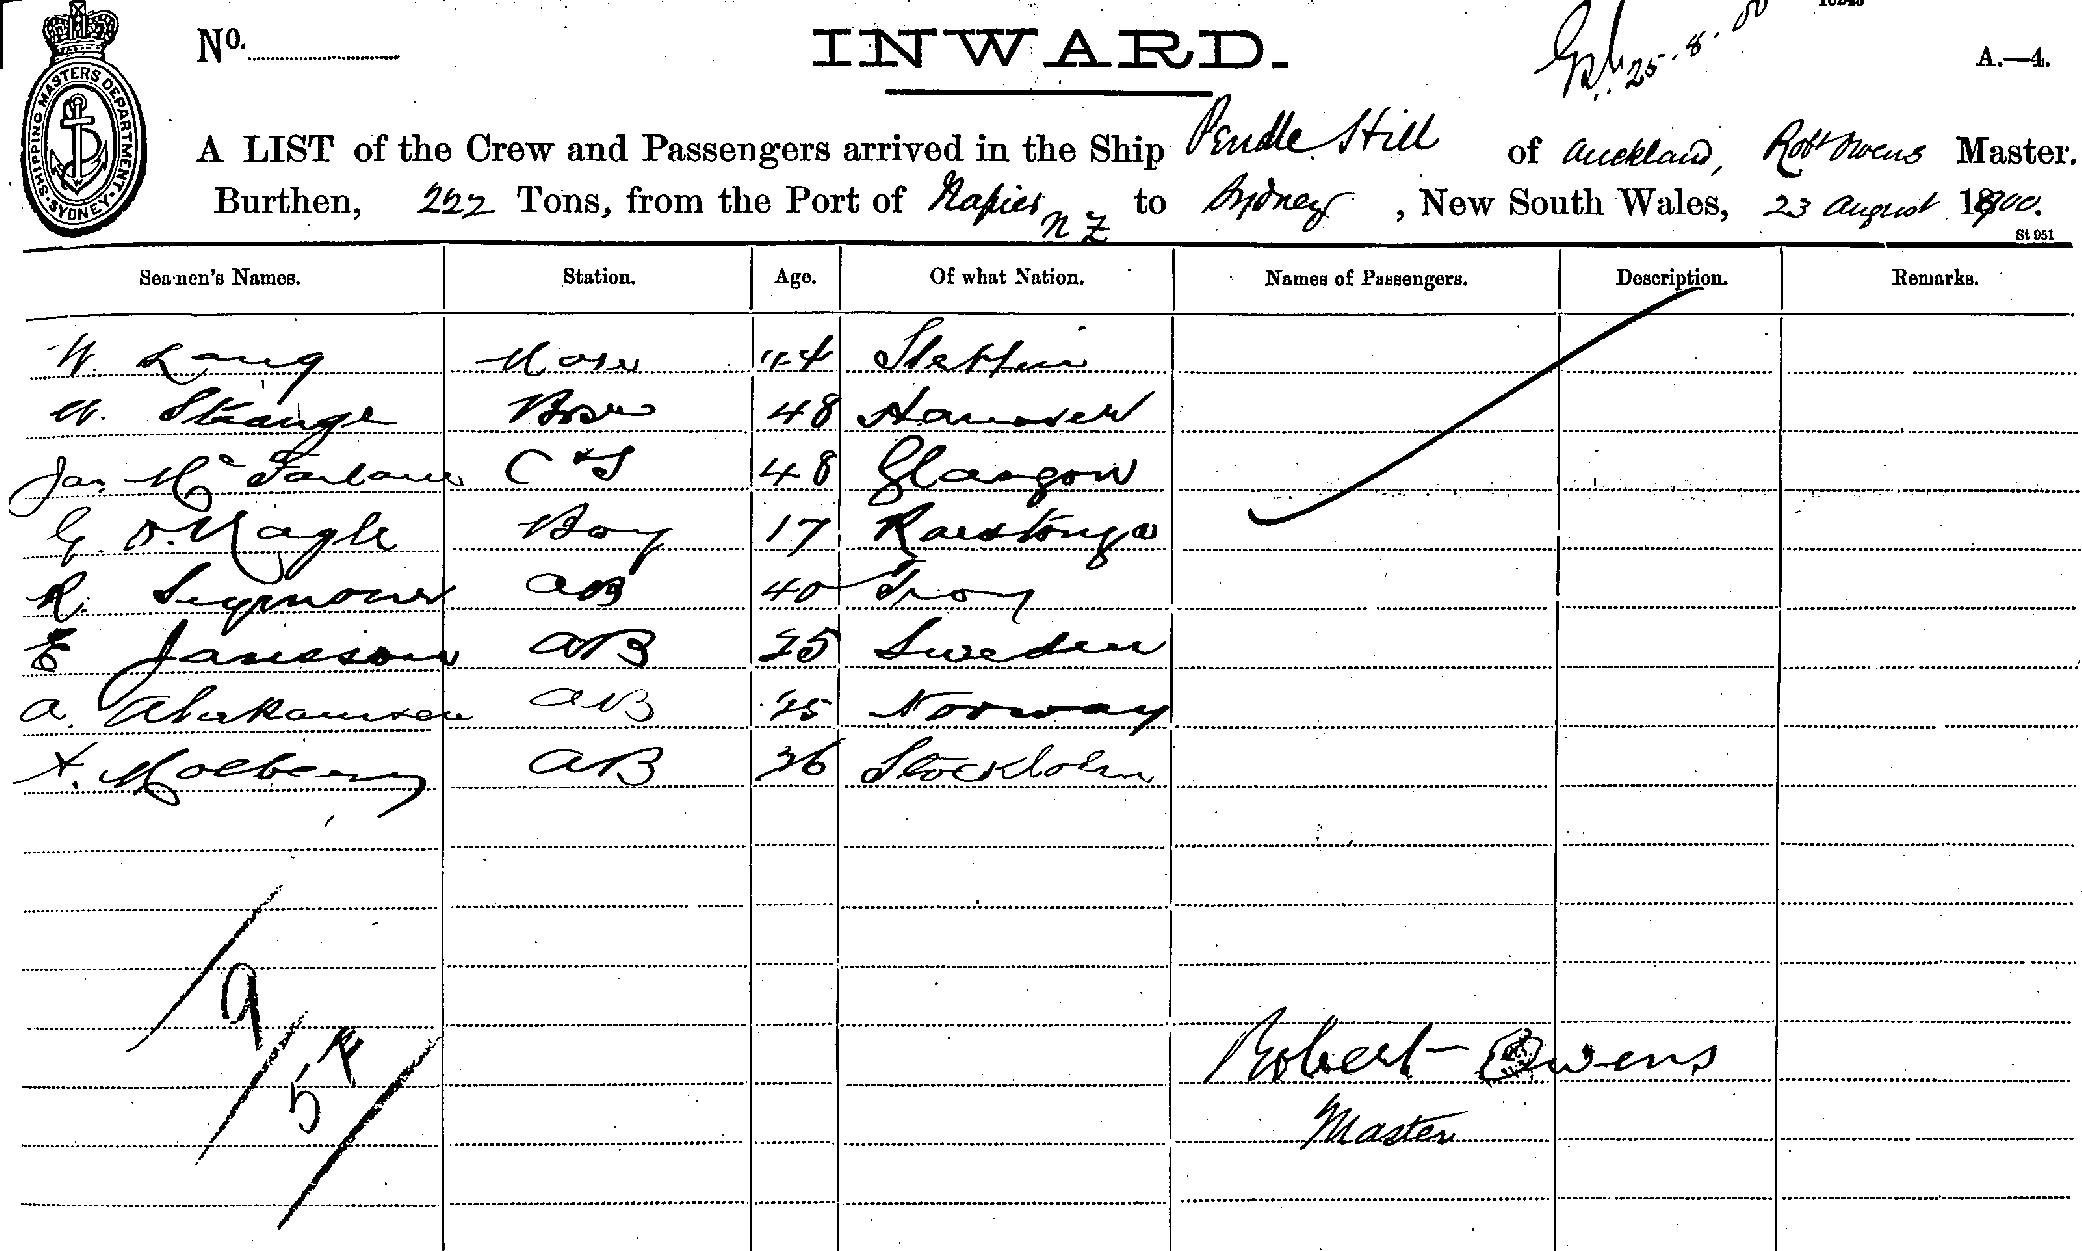 No.
INWARD.
25.8.00
A.—4.
SHIPPING MASTERS DEPARTMENT. SYDNEY.
A LIST of the Crew and Passengers arrived in the Ship Pendle Hill of Auckland, Robt Owens Master.
Burthen, 222 Tons, from the Port of Napier NZ to Sydney, New South Wales, 23 August 1900.
St 951
Seamen's Names. Station. Age. Of what Nation. Names of Passengers. Description. Remarks.
W. Lang 44 Stettin
W. Strange Bosn 48 Hanover
Jas. McFarlane C & S 48 Glasgow
G. O. Nagle Boy 17 Rarotonga
R. Seymour AB 40 Troy
E Jansson AB 25 Sweden
A. Abrahamsen AB 25 Norway
A. Molberg AB 26 Stockholm
9
54
Robert Owens
Master